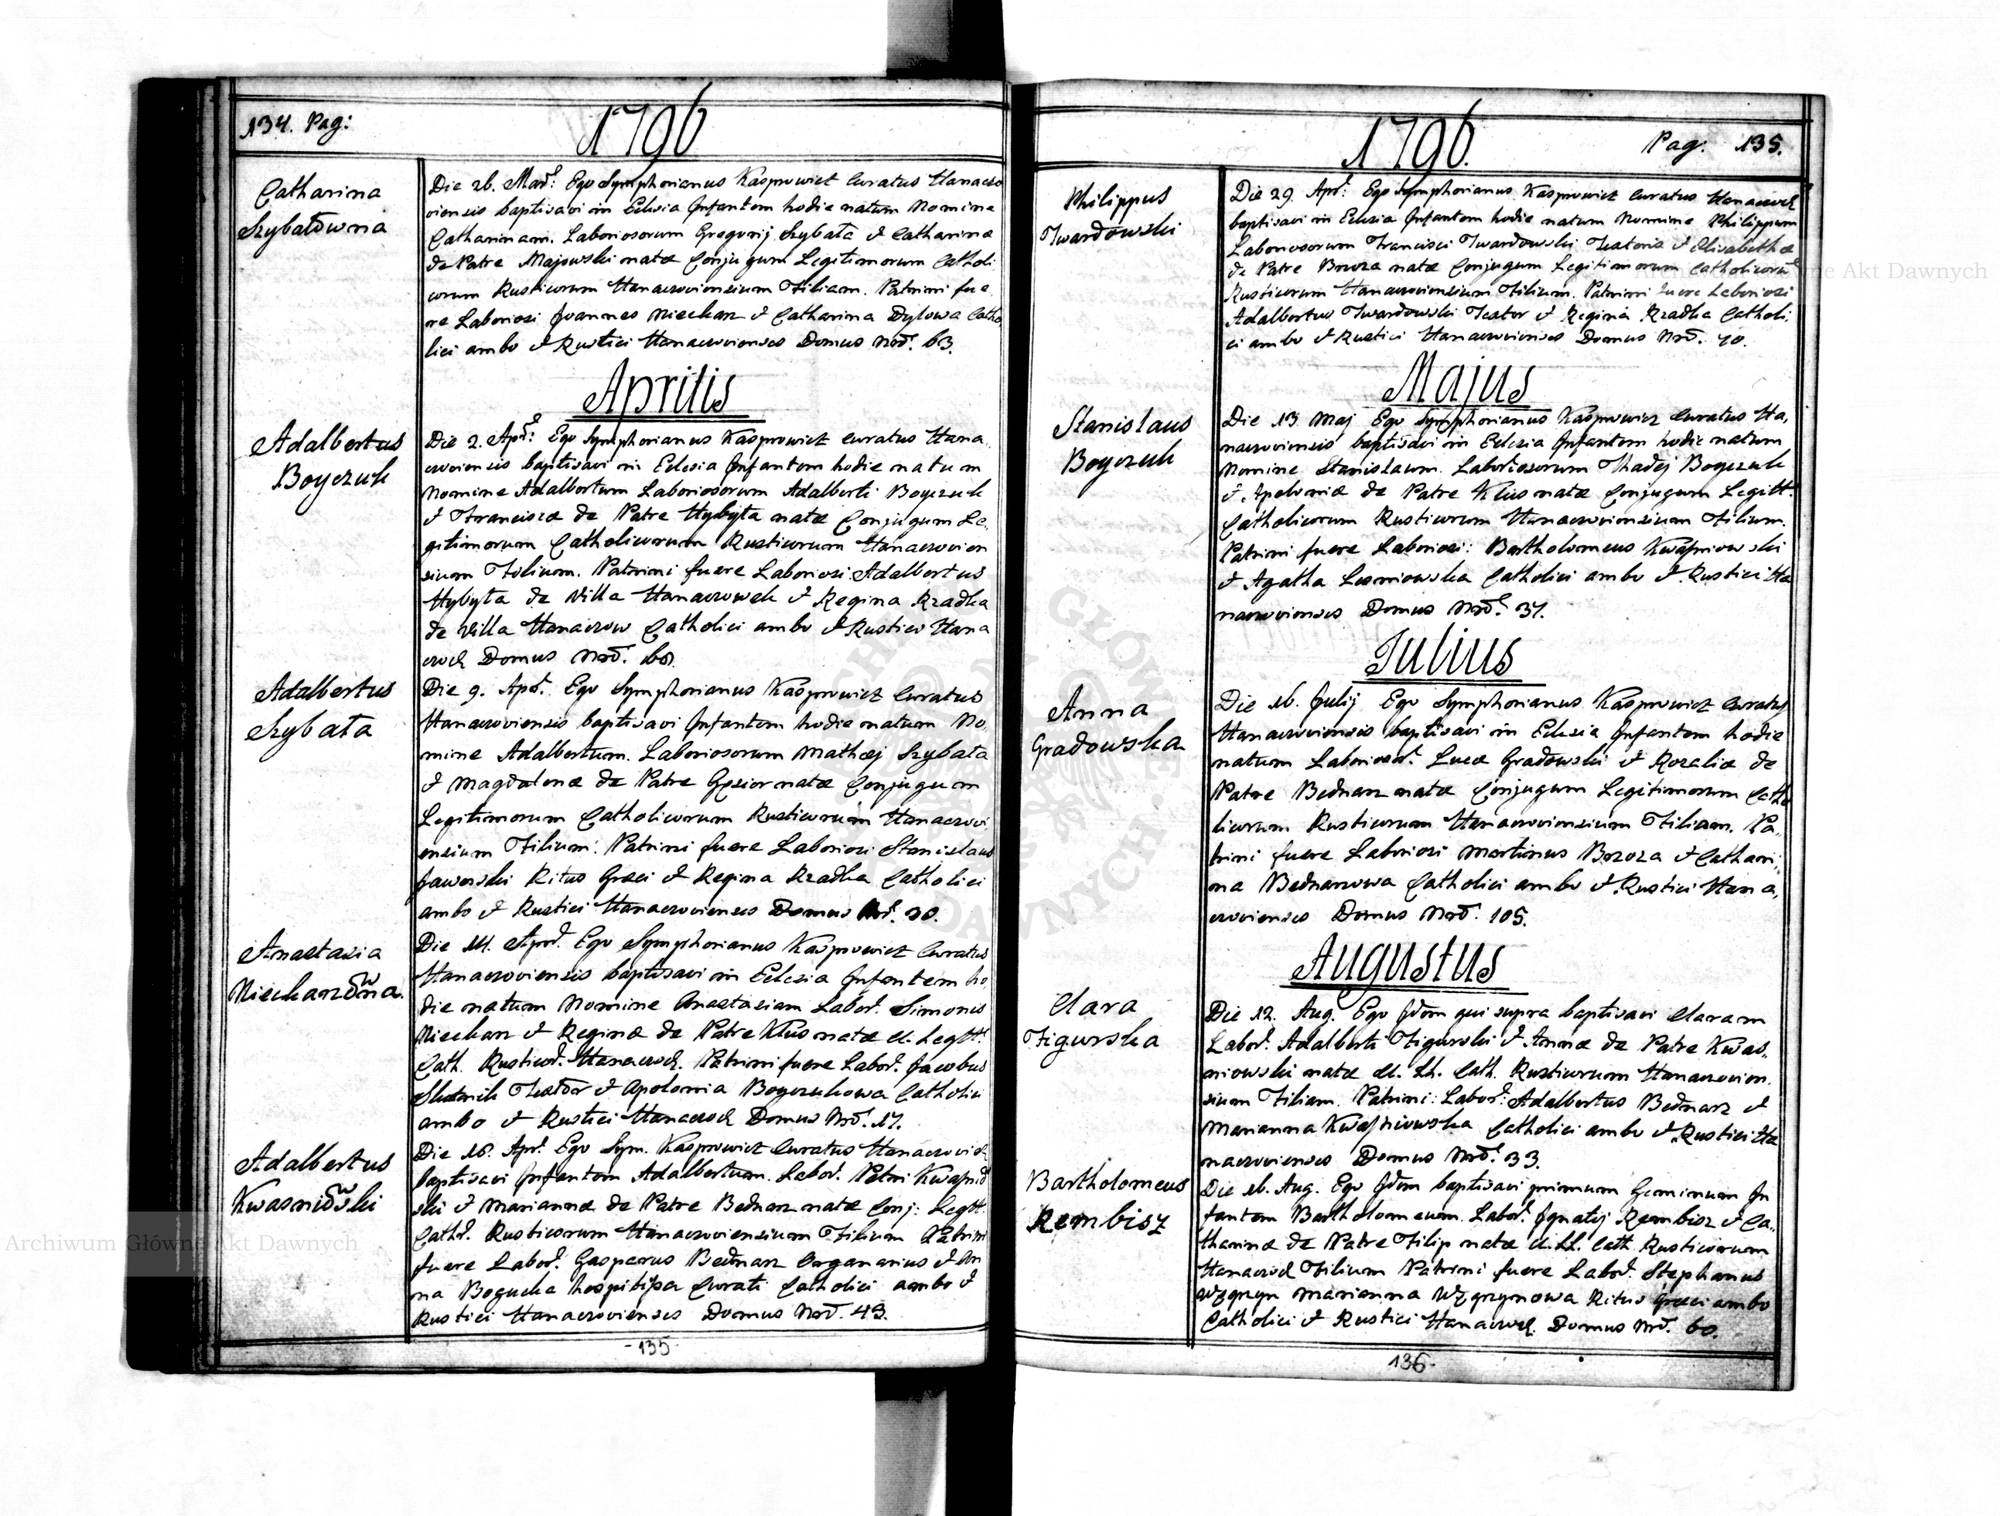 134. Pag:
1796
Catharina
Szybałowna
Die 26. Mar: Ego Symphorianus Kasprowicz Curatus Hanaczo
viensis baptisavi in Eclesia Infantem hodie natum Nomine
Catharinam. Laboriosorum Gregorij Szybała et Catharinæ
de Patre Majowski natæ Conjugum Legitimorum Catholi
corum Rusticorum Hanaczoviensium Filiam. Patrini fue
re Laboriosi Joannes Niecharz et Catharina Dylowa Catho
lici ambo et Rustici Hanaczovienses Domus Nro. 63.
Aprilis
Adalbertus
Boyczuk
Die 2. Apr: Ego Symphorianus Kasprowicz Curatus Hana
czoviensis baptisavi in Eclesia Infantem hodie natum
Nomine Adalbertum Laboriosorum Adalberti Boyczuk
et Franciscæ de Patre Hybyła natæ Conjugum Le,
gitimorum Catholicorum Rusticorum Hanaczovien
sium Filium. Patrini fuere Laboriosi Adalbertus
Hybyła de Villa Hanaczowek et Regina Rzadka
de Villa Hanaczow Catholici ambo et Rustici Hana
czov. Domus Nro.
Adalbertus
Szybała
Die 9. Apr. Ego Symphorianus Kasprowicz Curatus
Hanaczoviensis baptisavi Infantem hodie natum No,
mine Adalbertum. Laboriosorum Mathæj Szybała
et Magdalenæ de Patre natæ Conjugum
Legitimorum Catholicorum Rusticorum Hanaczovi,
ensium Filium: Patrini fuere Laboriosi Stanislaus
Jaworski Ritus Græci et Regina Rzadka Catholici
ambo et Rustici Hanaczovienses Domus Nro. 20.
Anastasia
Niecharzowna.
Die 14. Apr. Ego Symphorianus Kasprowicz Curatus
Hanaczoviensis baptisavi in Eclesia Infantem ho
die natum Nomine Anastasiam Labor. Simonis
Niecharz et Reginæ de Patre Klus natæ C. Legtt:
Cath. Rusticor. Hanaczov. Patrini fuere Labor. Jacobus
Textor et Apolonia Boyczukowa Catholici
ambo et Rustici Hanaczov. Domus Nro. 17.
Adalbertus
Kwasniowski
Die 16. Apr. Ego Sym. Kasprowicz Curatus Hanaczovien.
baptisavi Infantem Adalbertum. Labor. Petri Kwasnio
ski et Mariannæ de Patre Bednarz natæ Conj: Legtt.
Cathol. Rusticorum Hanaczoviensium Filium Patrini
fuere Labor. Gasparus Bednarz Organarius et An
na Bogucka hospitissa Curati Catholici ambo et
Rustici Hanaczovienses Domus Nro. 43.
-135-
1796.
Pag: 135.
Philippus
Twardowski
Die 29. Apr: Ego Symphorianus Kasprowicz Curatus Hanaczov.
baptisavi in Eclesia Infantem hodie natum Nomine Philippum
Laboriosorum Francisci Twardowski Textoris et Elisabethæ
de Patre Bzoza natæ Conjugum Legitimorum Catholicorum
Rusticorum Hanaczoviensium Filium. Patrini fuere Laboriosi
Adalbertus Twardowski Textor et Regina Rzadka Catholi,
ci ambo et Rustici Hanaczovienses Domus Nro. 70.
Majus
Stanislaus
Boyczuk
Die 13 Maj Ego Symphorianus Kasprowicz Curatus Ha,
naczoviensis baptisavi in Eclesia Infantem hodie natum
Nomine Stanislaum. Laboriosorum Thadej Boyczuk
et Apoloniæ de Patre Klus natæ Conjugum Legitt.
Catholicorum Rusticorum Hanaczoviensium Filium.
Patrini fuere Laboriosi: Bartholomeus Kwasniowski
et Agatha Lesniowska Catholici ambo et Rustici Ha
naczovienses Domus Nro. 37.
Julius
Anna
Gradowska
Die 16. Julij Ego Symphorianus Kasprowicz Curatus
Hanaczoviensis baptisavi in Eclesia Infantem hodie
natum Laborior. Lucæ Gradowski et Rozaliæ de
Patre Bednarz natæ Conjugum Legitimorum Catho
licorum Rusticorum Hanaczoviensium Filiam. Pa,
trini fuere Laboriosi Martinus Bzoza et Cathari,
na Bednarzowa Catholici ambo et Rustici Hana,
czovienses Domus Nro. 105.
Augustus
Clara
Figurska
Die 12. Aug. Ego Idem qui supra baptisavi Claram
Labor. Adalberti Figurski et Annæ de Patre Kwas,
niowski natæ C. LL. Cath. Rusticorum Hanaczovien,
sium Filiam. Patrini: Labor: Adalbertus Bednarz et
Marianna Kwasniowska Catholici ambo et Rustici Ha
naczovienses Domus Nro. 33.
Bartholomeus
Rembisz
Die 16. Aug. Ego Idem baptisavi primum Geminum In
fantem Bartholomeum. Labor. Ignatij Rembisz et Ca,
tharinæ de Patre Filip natæ C. LL. Cath. Rusticorum
Hanaczov. Filium Patrini fuere Labor. Stephanus
Węgrzyn Marianna Węgrzynowa Ritus Græci ambo
Catholici et Rustici Hanaczov. Domus Nro. 60.
136-
Archiwum Główne Akt Dawnych
Archiwum Główne Akt Dawnych
ARCHIWUM GŁÓWNE AKT DAWNYCH